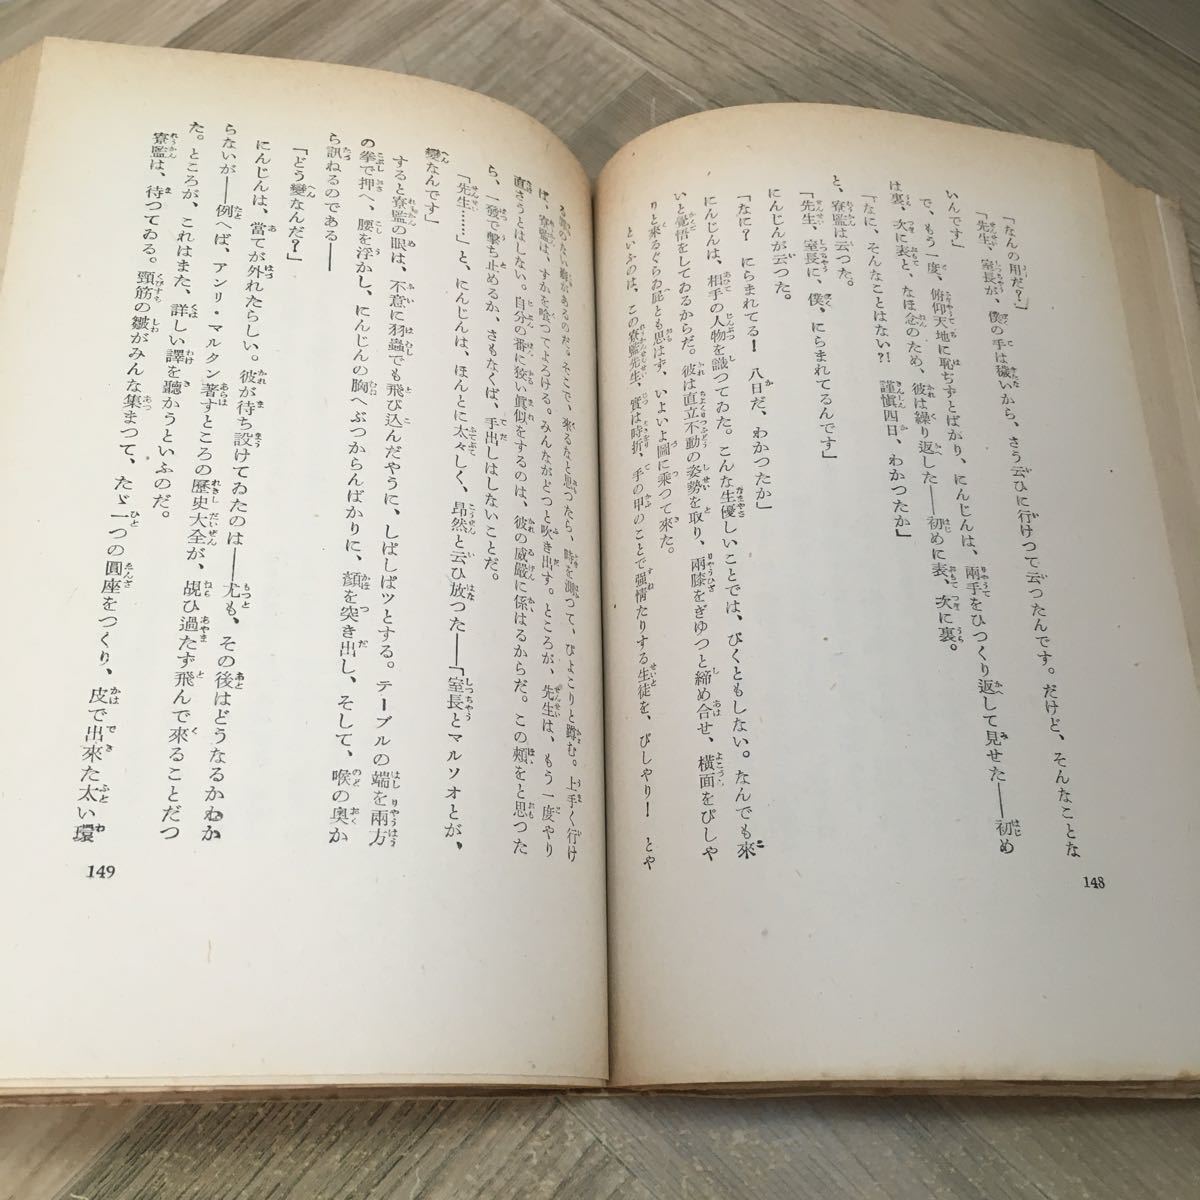 「なんの用だ？」
「先生、室長が、僕の手は穢いから、さう云ひに行けつて云つたんです。だけど、そんなことな
いんです」
で、もう一度、俯仰天地に恥ぢずとばかり、にんじんは、兩手をひつくり返して見せた――初め
は裏、次に表と、なほ念のため、彼は繰り返した――初めに表、次に裏。
「なに、そんなことはない？！　謹愼四日、わかつたか」
と、寮監は云つた。
「先生、室長に、僕、にらまれてるんです」
にんじんが云つた。
「なに？　にらまれてる！　八日だ、わかつたか」
にんじんは、相手の人物を識つてゐた。こんな生優しいことでは、びくともしない。なんでも來
いと覺悟をしてゐるからだ。彼は直立不動の姿勢を取り、兩膝をぎゆつと締め合せ、橫面をぴしや
りと來るぐらゐ屁とも思はず、いよいよ圖に乘つて來た。
といふのは、この寮監先生、實は時折、手の甲のことで强情たりする生徒を、ぴしやり！　とや
148
る癖のいい癖があるのだ。そこで、來るなと思つたら、時を測つて、ぴよこりと蹲む。上手く行け
ば、寮監は、すかを喰つてよろける。みんながどつと吹き出す。ところが、先生は、もう一度やり
直さうとはしない。自分の番に狡い眞似をするのは、彼の威嚴に係はるからだ。この頰をと思つた
ら、一發で擊ち止めるか、さもなくば、手出しはしないことだ。
「先生……」と、にんじんは、ほんとに太々しく、昂然と云ひ放つた――「室長とマルソオとが、
變なんです」
すると寮監の眼は、不意に羽蟲でも飛び込んだやうに、しぱしぱツとする。テーブルの端を兩方
の拳で押へ、腰を浮かし、にんじんの胸へぶつからんばかりに、顏を突き出し、そして、喉の奧か
ら訊ねるのである――
「どう變なんだ？」
にんじんは、當てが外れたらしい。彼が待ち設けてゐたのは――尤も、その後はどうなるかわか
らないが――例へば、アンリ・マルタン著すところの歷史大全が、覘ひ過たず飛んで來ることだつ
た。ところが、これはまた、詳しい譯を聽かうといふのだ。
寮監は、待つてゐる。頸筋の皺がみんな集まつて、たゞ一つの圓座をつくり、皮で出來た太い環
149